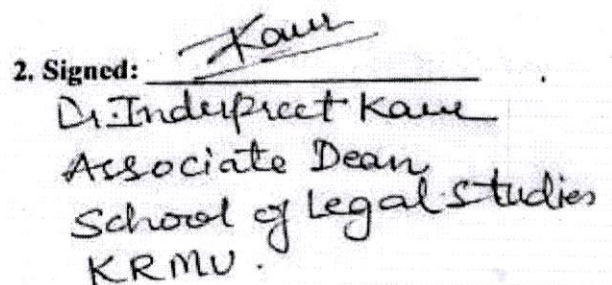 2. Signed: Kaur
Dr. Inderpreet Kaur
Associate Dean
School of Legal Studies
KRMU.